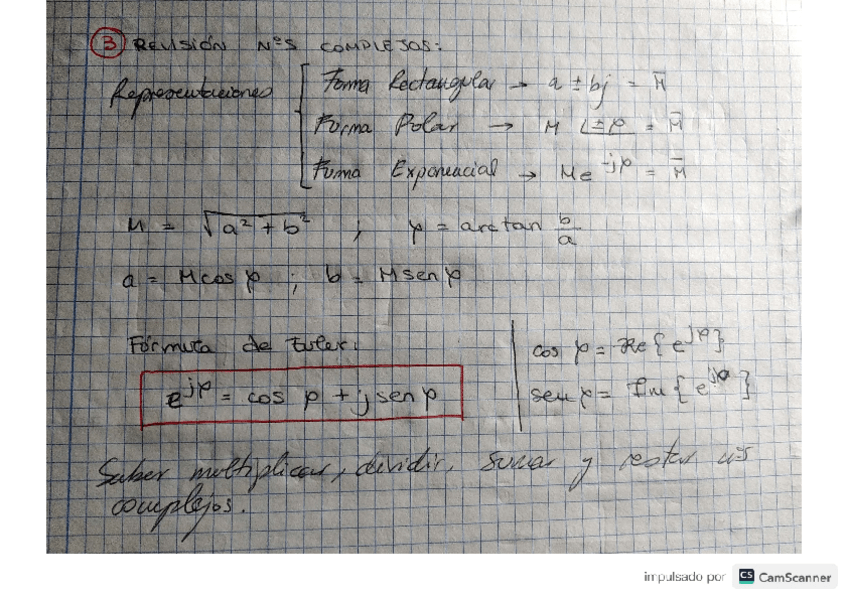 ③ REVISIÓN NºS COMPLEJOS:
Representaciones
Forma Rectangular → a ± bj = M̅
Forma Polar → M ∠±φ = M̅
Forma Exponencial → Me^-jφ = M̅
M = √a² + b² ; φ = arctan b/a
a = M cos φ ; b = M sen φ
Fórmula de Euler:
e^jφ = cos φ + j sen φ
cos φ = Re{e^jφ}
sen φ = Im{e^jφ}
Saber multiplicar, dividir, sumar y restar nºs
complejos.
impulsado por CS CamScanner